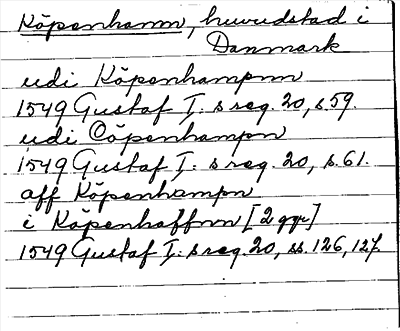 Köpenhamn, huvudstad i
Danmark
udi Köpenhampnn
1549 Gustaf I: s reg. 20, s. 59.
udi Cöpenhampn
1549 Gustaf I: s reg. 20, s. 61.
aff Köpenhampn
i Köpenhaffnn [2 ggr]
1549 Gustaf I: s reg. 20, ss. 126, 127.